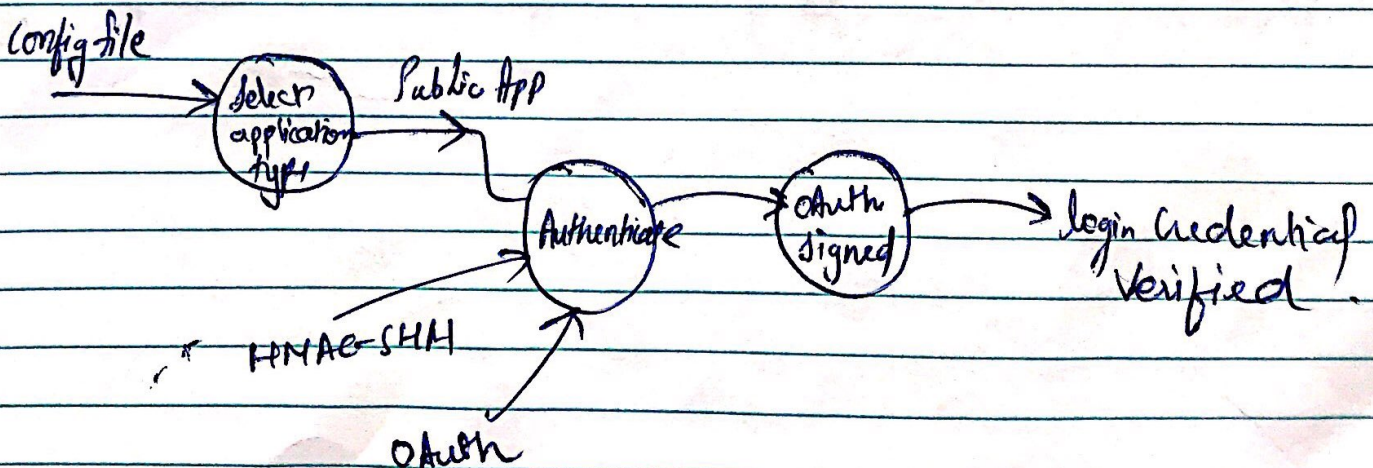 Config file
Select
application
type
Public App
Authenticate
OAuth
signed
login Credential
Verified.
HMAC-SHA
OAuth